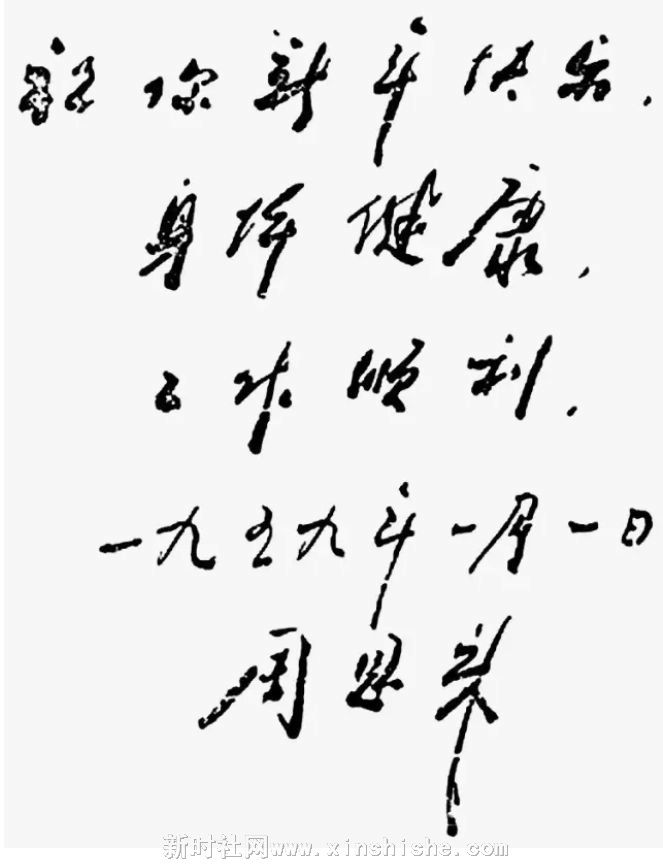 祝你新年快乐，
身体健康，
工作顺利。
一九五九年一月一日
周恩来
新时社网www.xinshishe.com